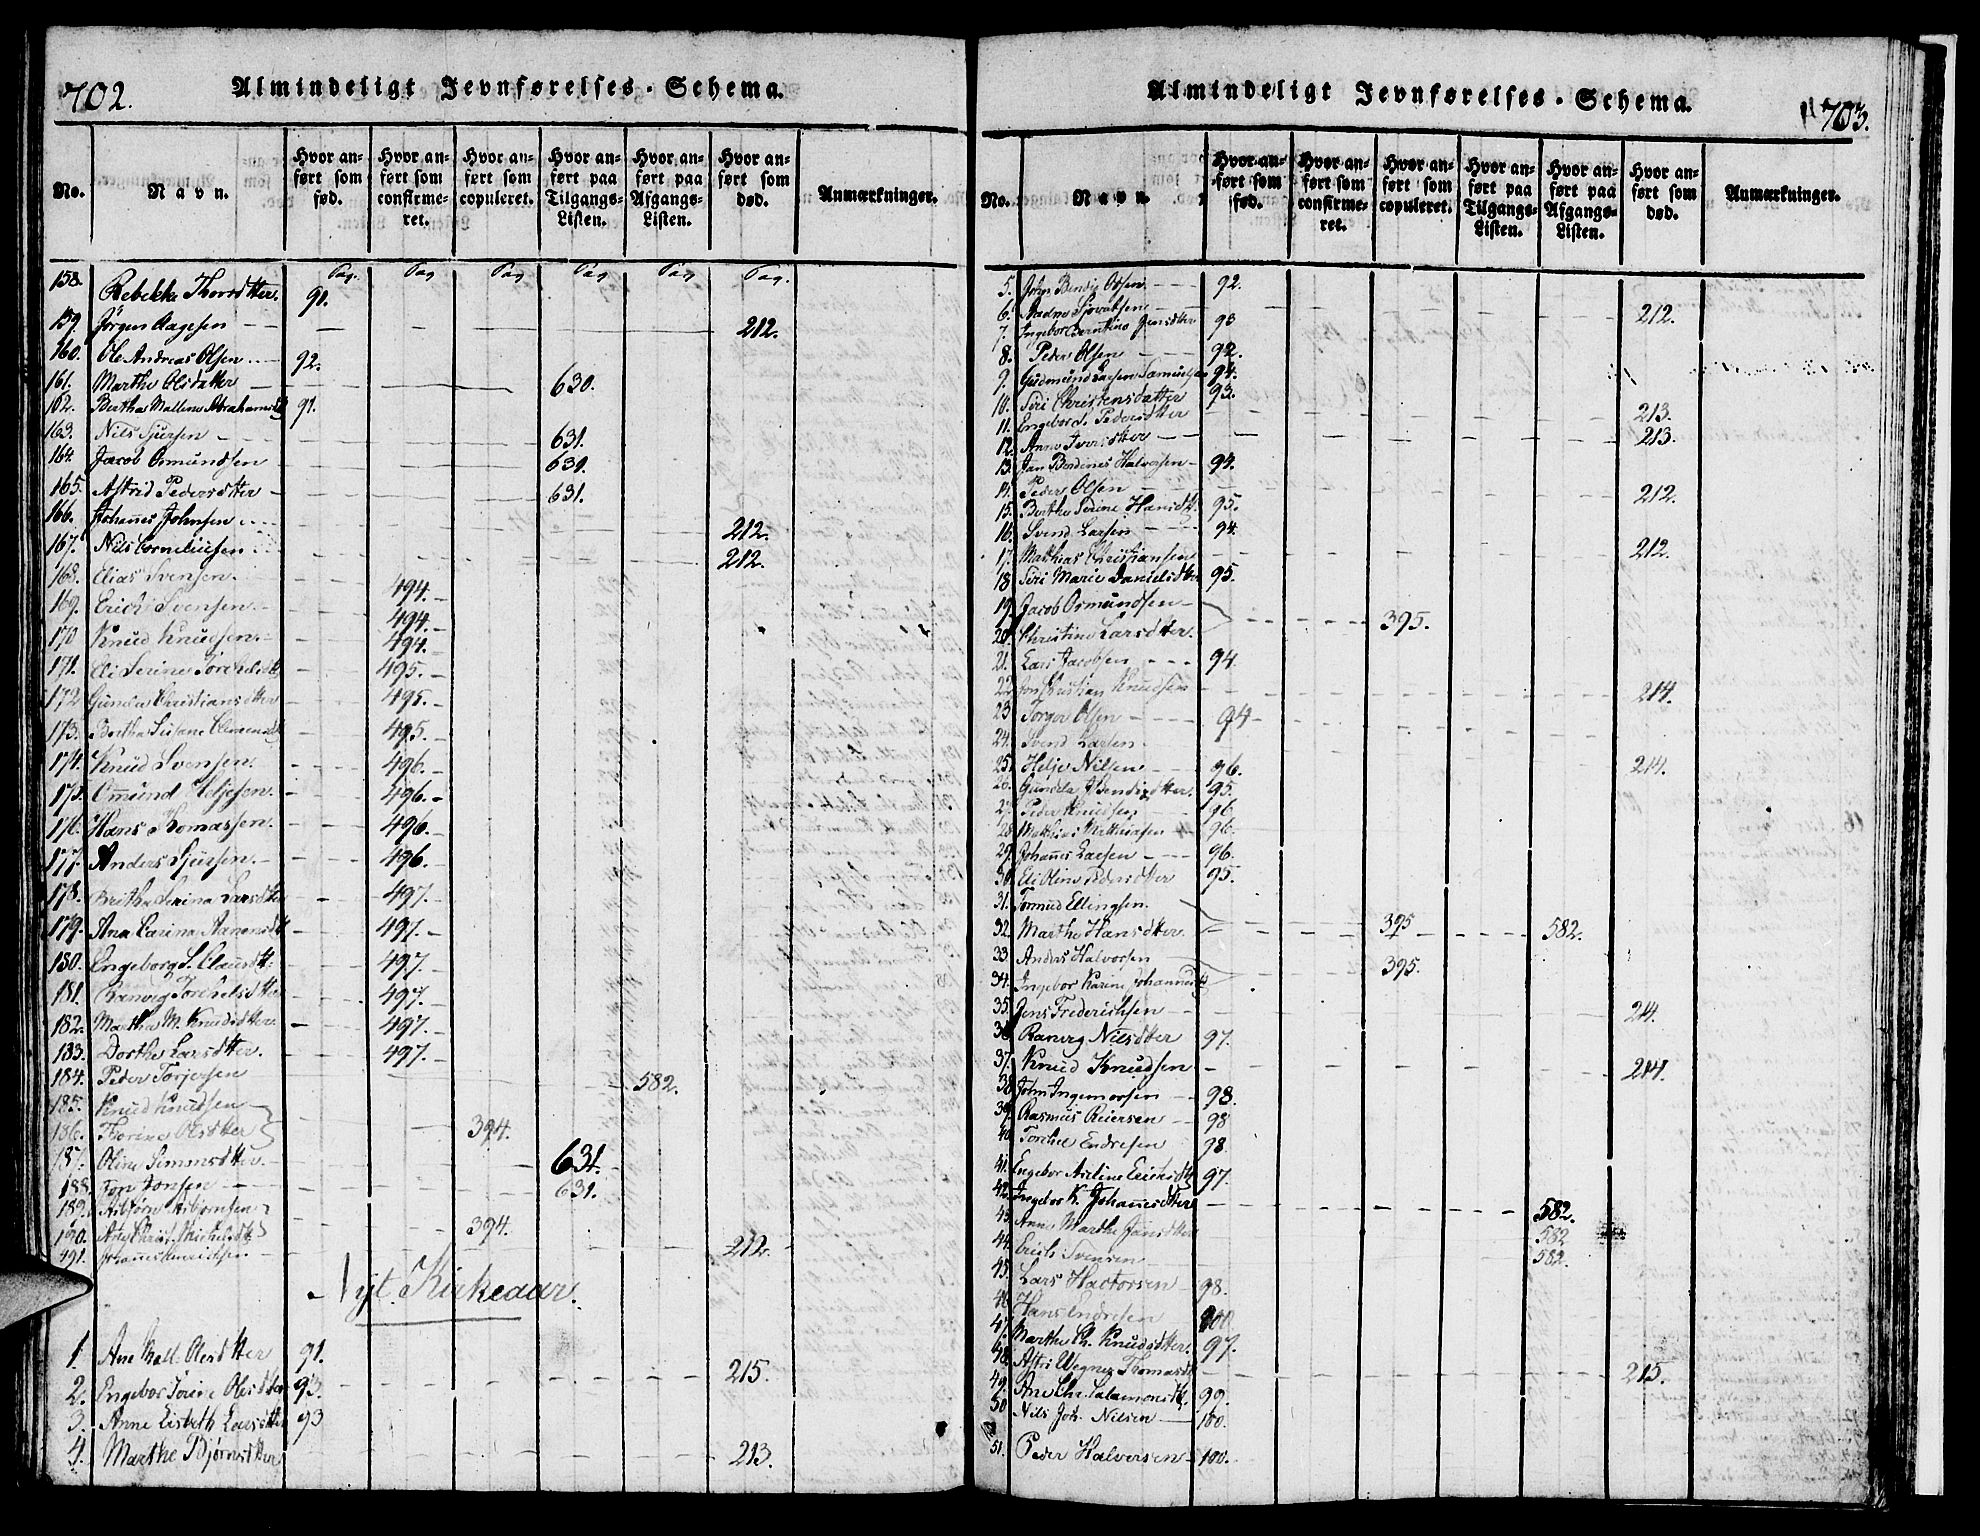 702.
Almindeligt Jevnførelses-Schema.
No. Navn. Hvor anført som fød. Hvor anført som confirmeret. Hvor anført som copuleret. Hvor anført paa Tilgangs-Listen. Hvor anført paa Afgangs-Listen. Hvor anført som død. Anmærkninger.
Pag. Pag Pag Pag Pag Pag.
158. Rebekka Thorsdtter. 91.
159. Jörgen Aagesen 212.
160. Ole Andreas Olsen 92.
161. Marthe Olsdatter 630.
162. Bertha Mallene Abrahamsd 91.
163. Nils Sjursen 631.
164. Jacob Osmundsen 631.
165. Astrid Pedersdtter 631.
166. Johanes Johnsen 212.
167. Nils Corneliusen 212.
168. Elias Svensen. 494.
169. Erich Svensen 494.
170 Knud Knudsen. 494.
171. Eli Serine 495.
172 Gunder Christiansdtter 495.
173. Bertha Susane 495.
174. Knud Svensen. 496.
175. Omund Heljesen. 496.
176. Hans Thomassen. 496.
177. Anders Sjursen. 496.
178. Britha Serina Larsdtter 497.
179. Ana Carina 497.
180. Engeborg S. Clausdt. 497.
181. Ranveig Torkelsdtter 497.
182. Martha M. Knudsdtter. 497.
183. Dorthe Larsdtter. 497.
184. Peder Torjersen 582.
185. Knud Knudsen
186. Thorine Olsdtter 394.
187. Oline Simonsdtter. 631.
188. Jon Jonsen 631.
189. Asbjörn Asbjornsen
190. Ane Christ. Michelsdt. 394.
191. Johannes 212.
Nyt Kirkeaar.
1. Ane Mall. Olesdtter 91.
2. Engebor Serine Olesdtter 93. 215.
3. Anne Lisbeth Larsdtter 93
4. Marthe Bjørnsdtter 213.
Almindeligt Jevnførelses-Schema.
703.
No. Navn. Hvor anført som fød. Hvor anført som confirmeret. Hvor anført som copuleret. Hvor anført paa Tilgangs-Listen. Hvor anført paa Afgangs-Listen. Hvor anført som død. Anmærkninger.
5. John Bendix Olsen 92.
6. 212.
7. Ingebor Berntine Jensdtter 93
8. Peder Olsen 92.
9. Gudmund Larsen Samuelsen 94.
10. Siri Christensdatter 93.
11. Engebor S. Pedersdtter 213.
12. Anne Iversdtter 213.
13. Jan Berdines Halvorsen 94.
14. Peder Olsen 212.
15. Berthe Serine Hansdt. 95.
16. Svend Larsen 94.
17. Mathias Christiansen 212.
18 Siri Marie Danielsdtter 95.
19. Jacob Osmundsen
20. Christine Larsdtter. 395.
21. Lars Jacobsen 94.
22. Jon Christian Knudsen 214.
23 Torger Olsen 94
24. Svend Larsen.
25. Helje Nilsen 96. 214.
26. Gunela Bendixdtter. 95.
27. Peder Knudsen 96.
28. Mathias Mathiasen 96.
29. Johanes Larsen 96.
30. Eli Oline Pedersdtter 95.
31. Tormud Ellingsen.
32. Marthe Hansdtter. 395 582.
33. Anders Halvorsen 395.
34. Ingebor Karine Johannesd
35. Jens Frederichsen 214.
36. Ranveg Nilsdtter 97.
37. Knud Knudsen 214.
38. John Ingemorsen 98.
39. Rasmus Reiersen 98
40. Torchel Endresen 98.
41. Engebor Ericksdt 97.
42. Ingebor K. Johanesdtter 582.
43. Anne Marthe Jansdtter 582
44. Erich Svensen 582.
45. Lars Hactorsen 98.
46. Hans Endresen 100
47. Marthe Ch. Knudsdtter. 97.
48. Astri Wegner Thomasdt 215.
49. Ane Chr. Salamonsdt. 99.
50 Nils Joh. Nilsen 100.
51. Peder Halversen 100.